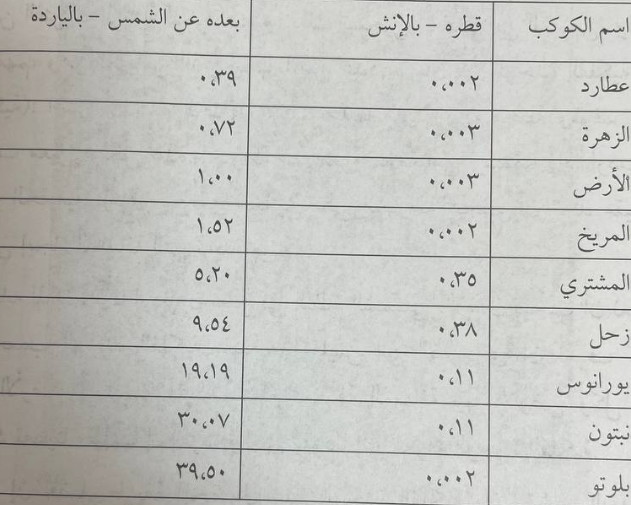 اسم الكوكب	قطره – بالإنش	بعده عن الشمس – بالياردة
عطارد	٠،٠٠٢	٠،٣٩
الزهرة	٠،٠٠٣	٠،٧٢
الأرض	٠،٠٠٣	١،٠٠
المريخ	٠،٠٠٢	١،٥٢
المشتري	٠،٣٥	٥،٢٠
زحل	٠،٣٨	٩،٥٤
يورانوس	٠،١١	١٩،١٩
نبتون	٠،١١	٣٠،٠٧
بلوتو	٠،٠٠٢	٣٩،٥٠